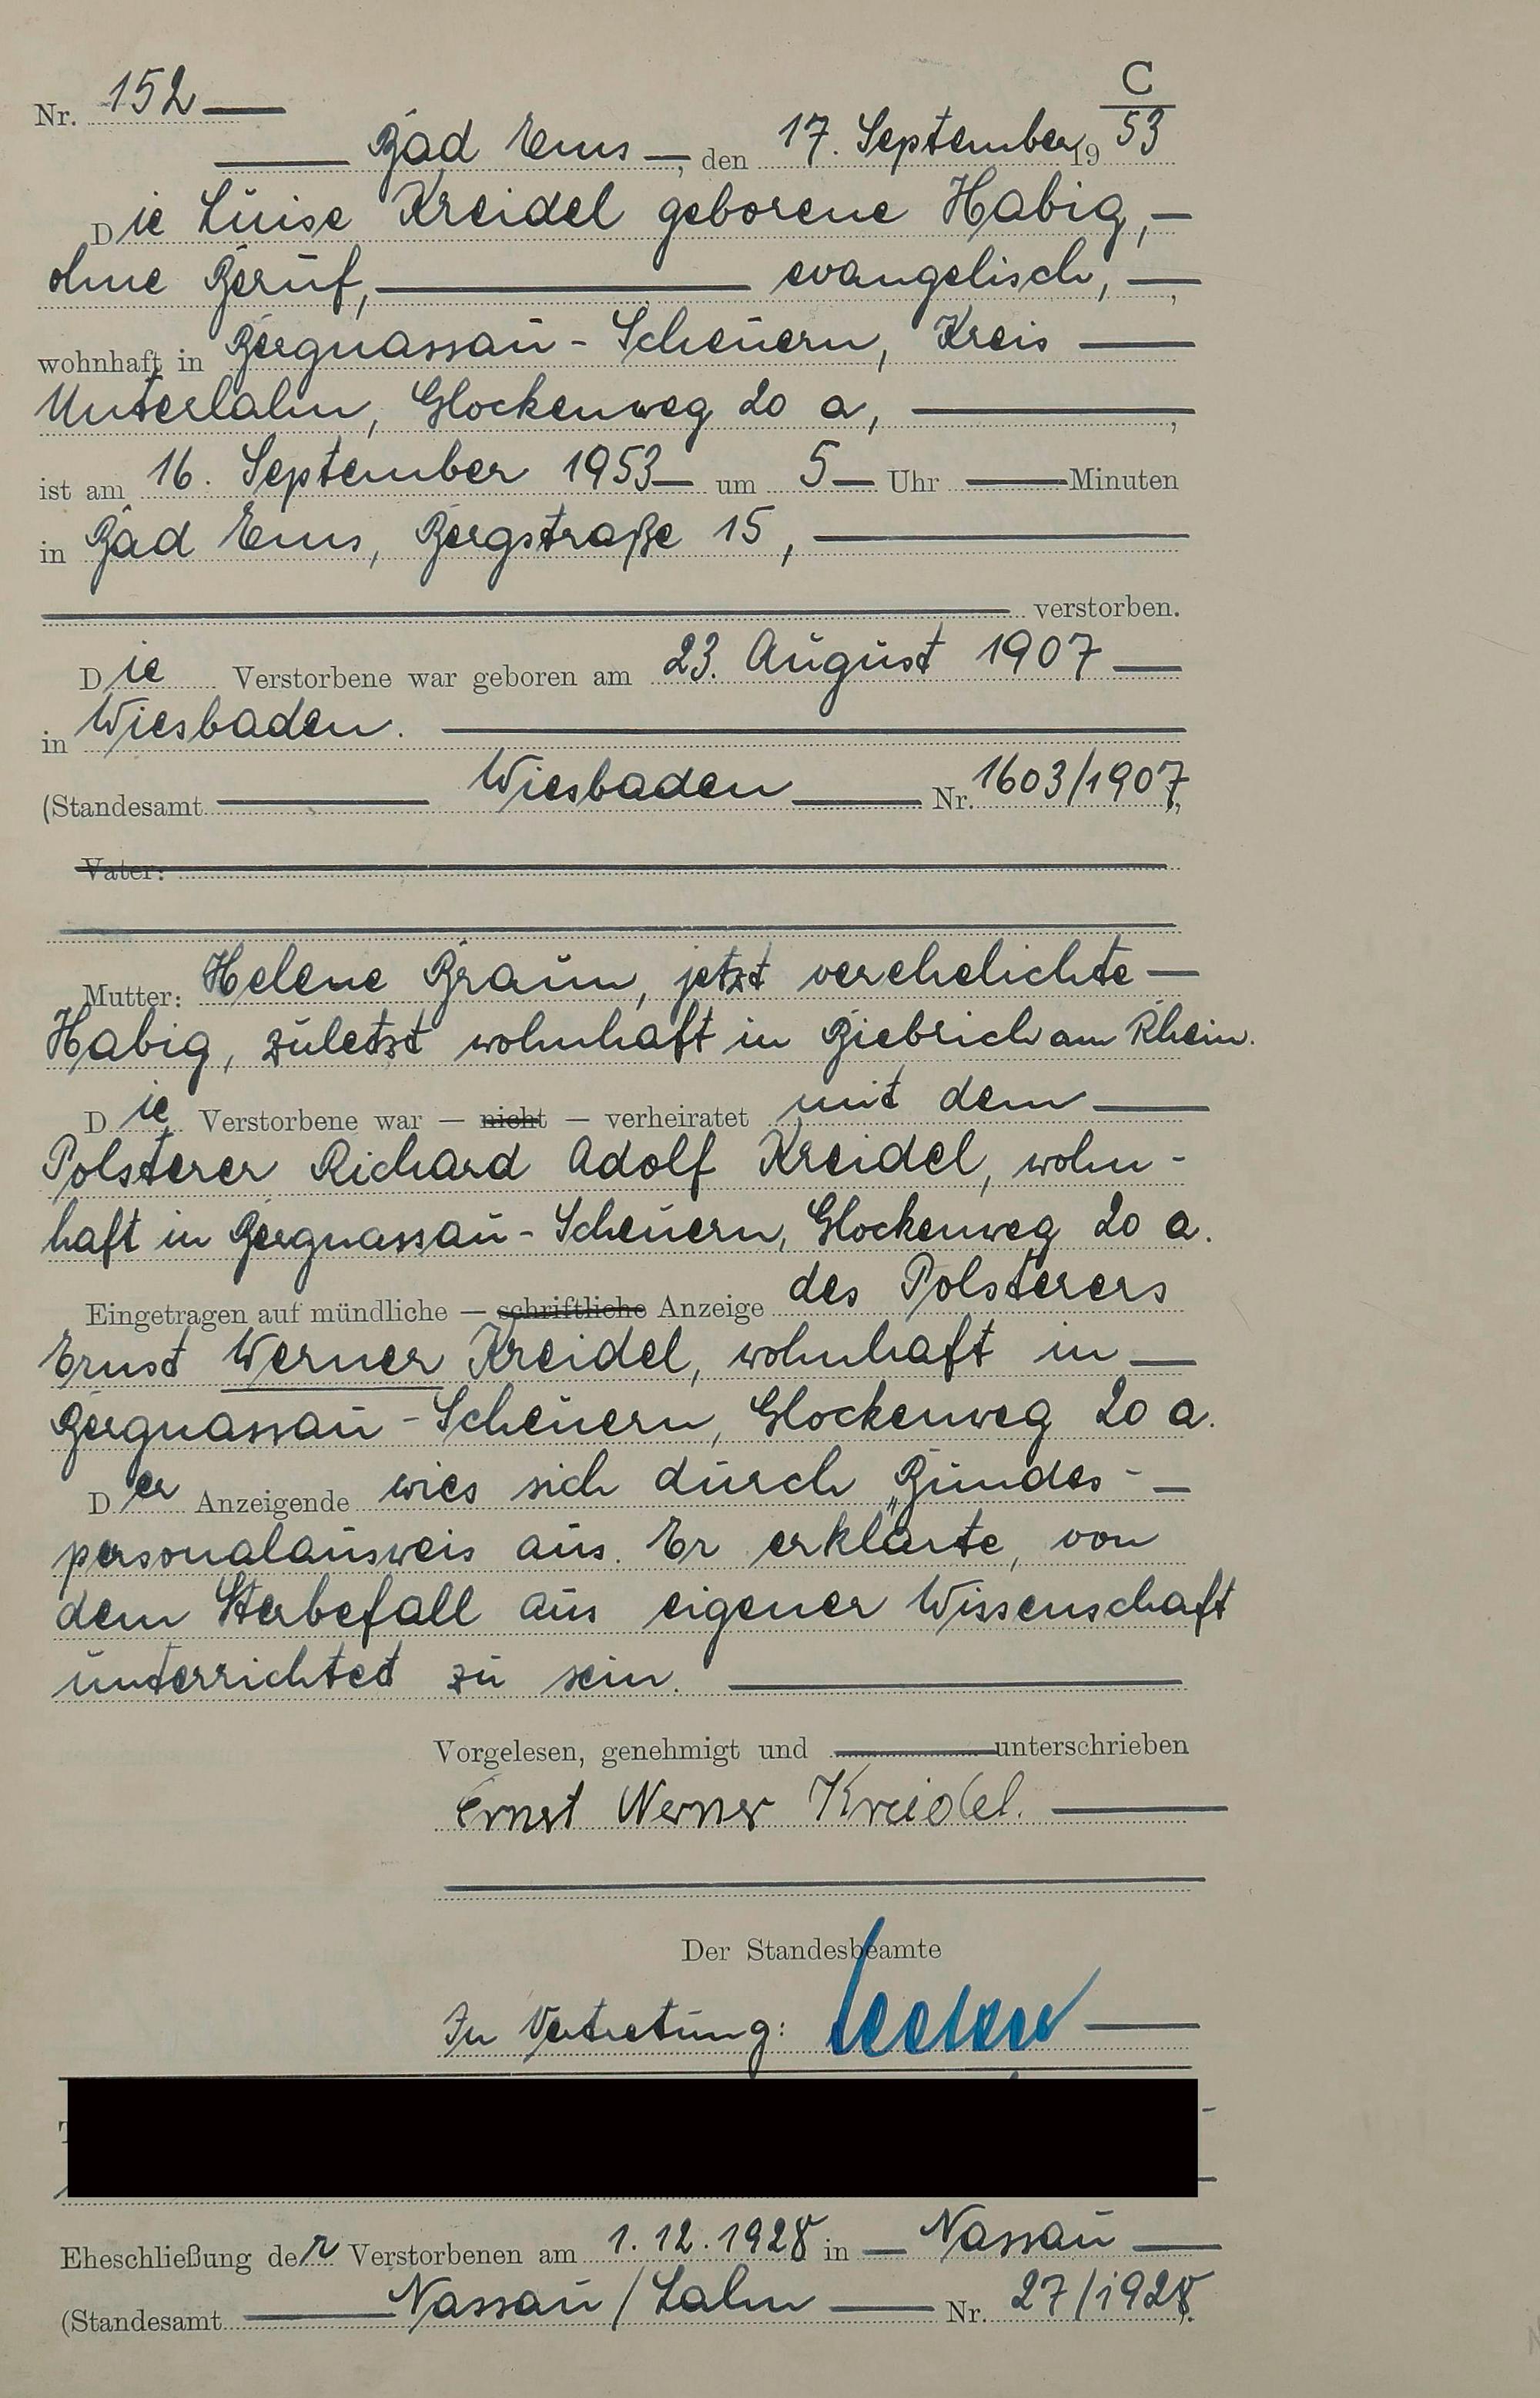 C
Nr. 152
Bad Ems, den 17. September 1953
Die Luise Kreidel geborene Habig,
ohne Beruf, evangelisch,
wohnhaft in Bergnassau-Scheuern, Kreis
Unterlahn, Glockenweg 20 a,
ist am 16. September 1953 um 5 Uhr Minuten
in Bad Ems, Bergstraße 15,
verstorben.
Die Verstorbene war geboren am 23. August 1907
in Wiesbaden.
(Standesamt Wiesbaden Nr. 1603/1907
Vater:
Mutter: Helene Braun, jetzt verehelichte
Habig, zuletzt wohnhaft in Biebrich am Rhein.
Die Verstorbene war — nicht — verheiratet mit dem
Polsterer Richard Adolf Kreidel, wohn-
haft in Bergnassau-Scheuern, Glockenweg 20 a.
Eingetragen auf mündliche — schriftliche Anzeige des Polsterers
Ernst Werner Kreidel, wohnhaft in
Bergnassau-Scheuern, Glockenweg 20 a.
Der Anzeigende wies sich durch „Bundes-
personalausweis aus. Er erklärte, von
dem Sterbefall aus eigener Wissenschaft
unterrichtet zu sein.
Vorgelesen, genehmigt und unterschrieben
Ernst Werner Kreidel.
Der Standesbeamte
In Vertretung:
Eheschließung der Verstorbenen am 1.12.1928 in Nassau
(Standesamt Nassau/Lahn Nr. 27/1928